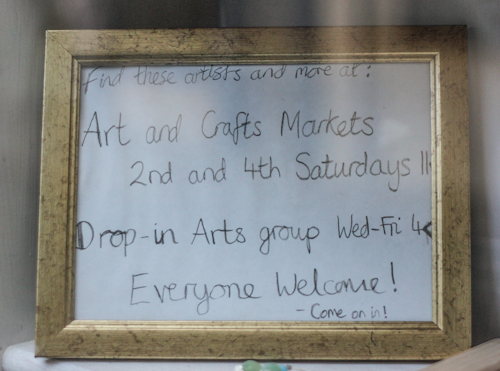 Find these artists and more at:
Art and Crafts Markets
2nd and 4th Saturdays
Drop-in Arts group Wed-Fri 4
Everyone Welcome!
- Come on in!